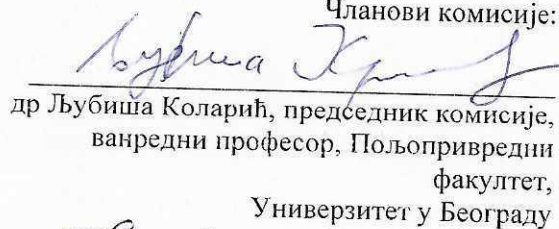 Чланови комисије:
Љубиша
др Љубиша Коларић, председник комисије,
ванредни професор, Пољопривредни
факултет,
Универзитет у Београду